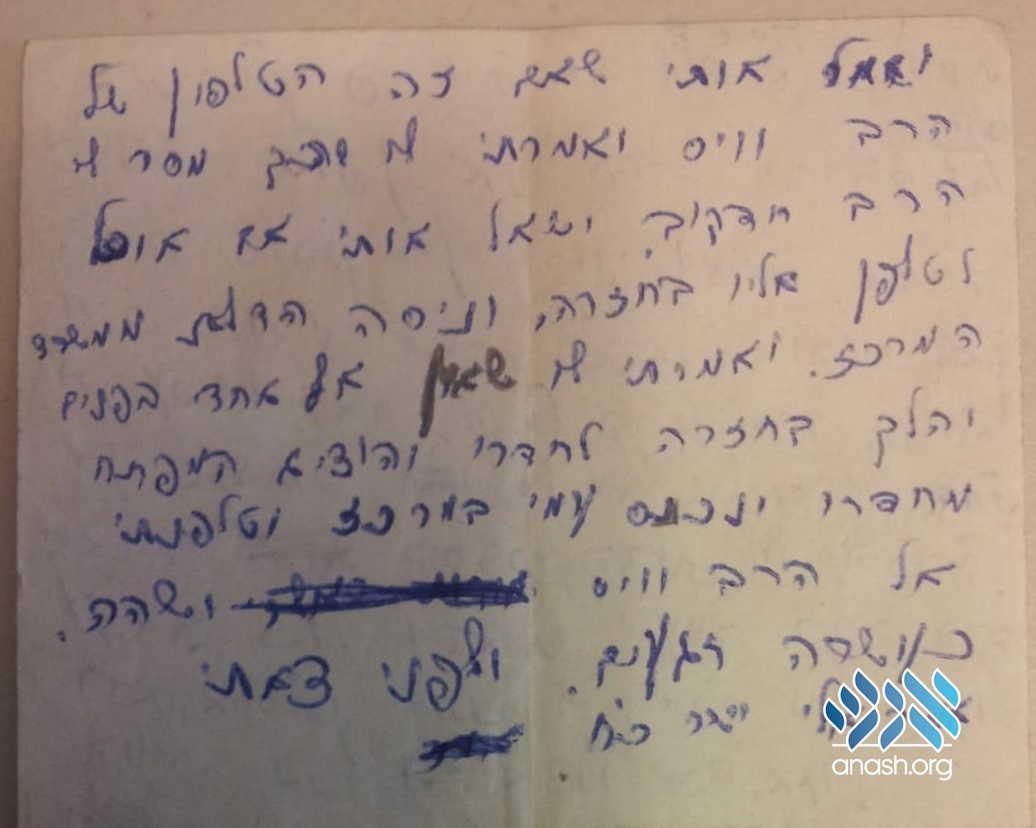 ושאל אותי שאם זה הטלפון של
הרב ווייס ואמרתי לו שהנ"ל מסר לי
הרב חדקוב. ושאל אותי אם אוכל
לטלפן אליו בחזרה, וניסה הדלת ממשרד
המרכז. ואמרתי לו שאין אף אחד בפנים
והלך בחזרה לחדרו והוציא המפתח
מחדרו ונכנס עמי במרכז וטלפנתי
אל הרב ווייס ושהה
כעשרה רגעים. ולפני צאתי
לי יישר כח
אנש
anash.org